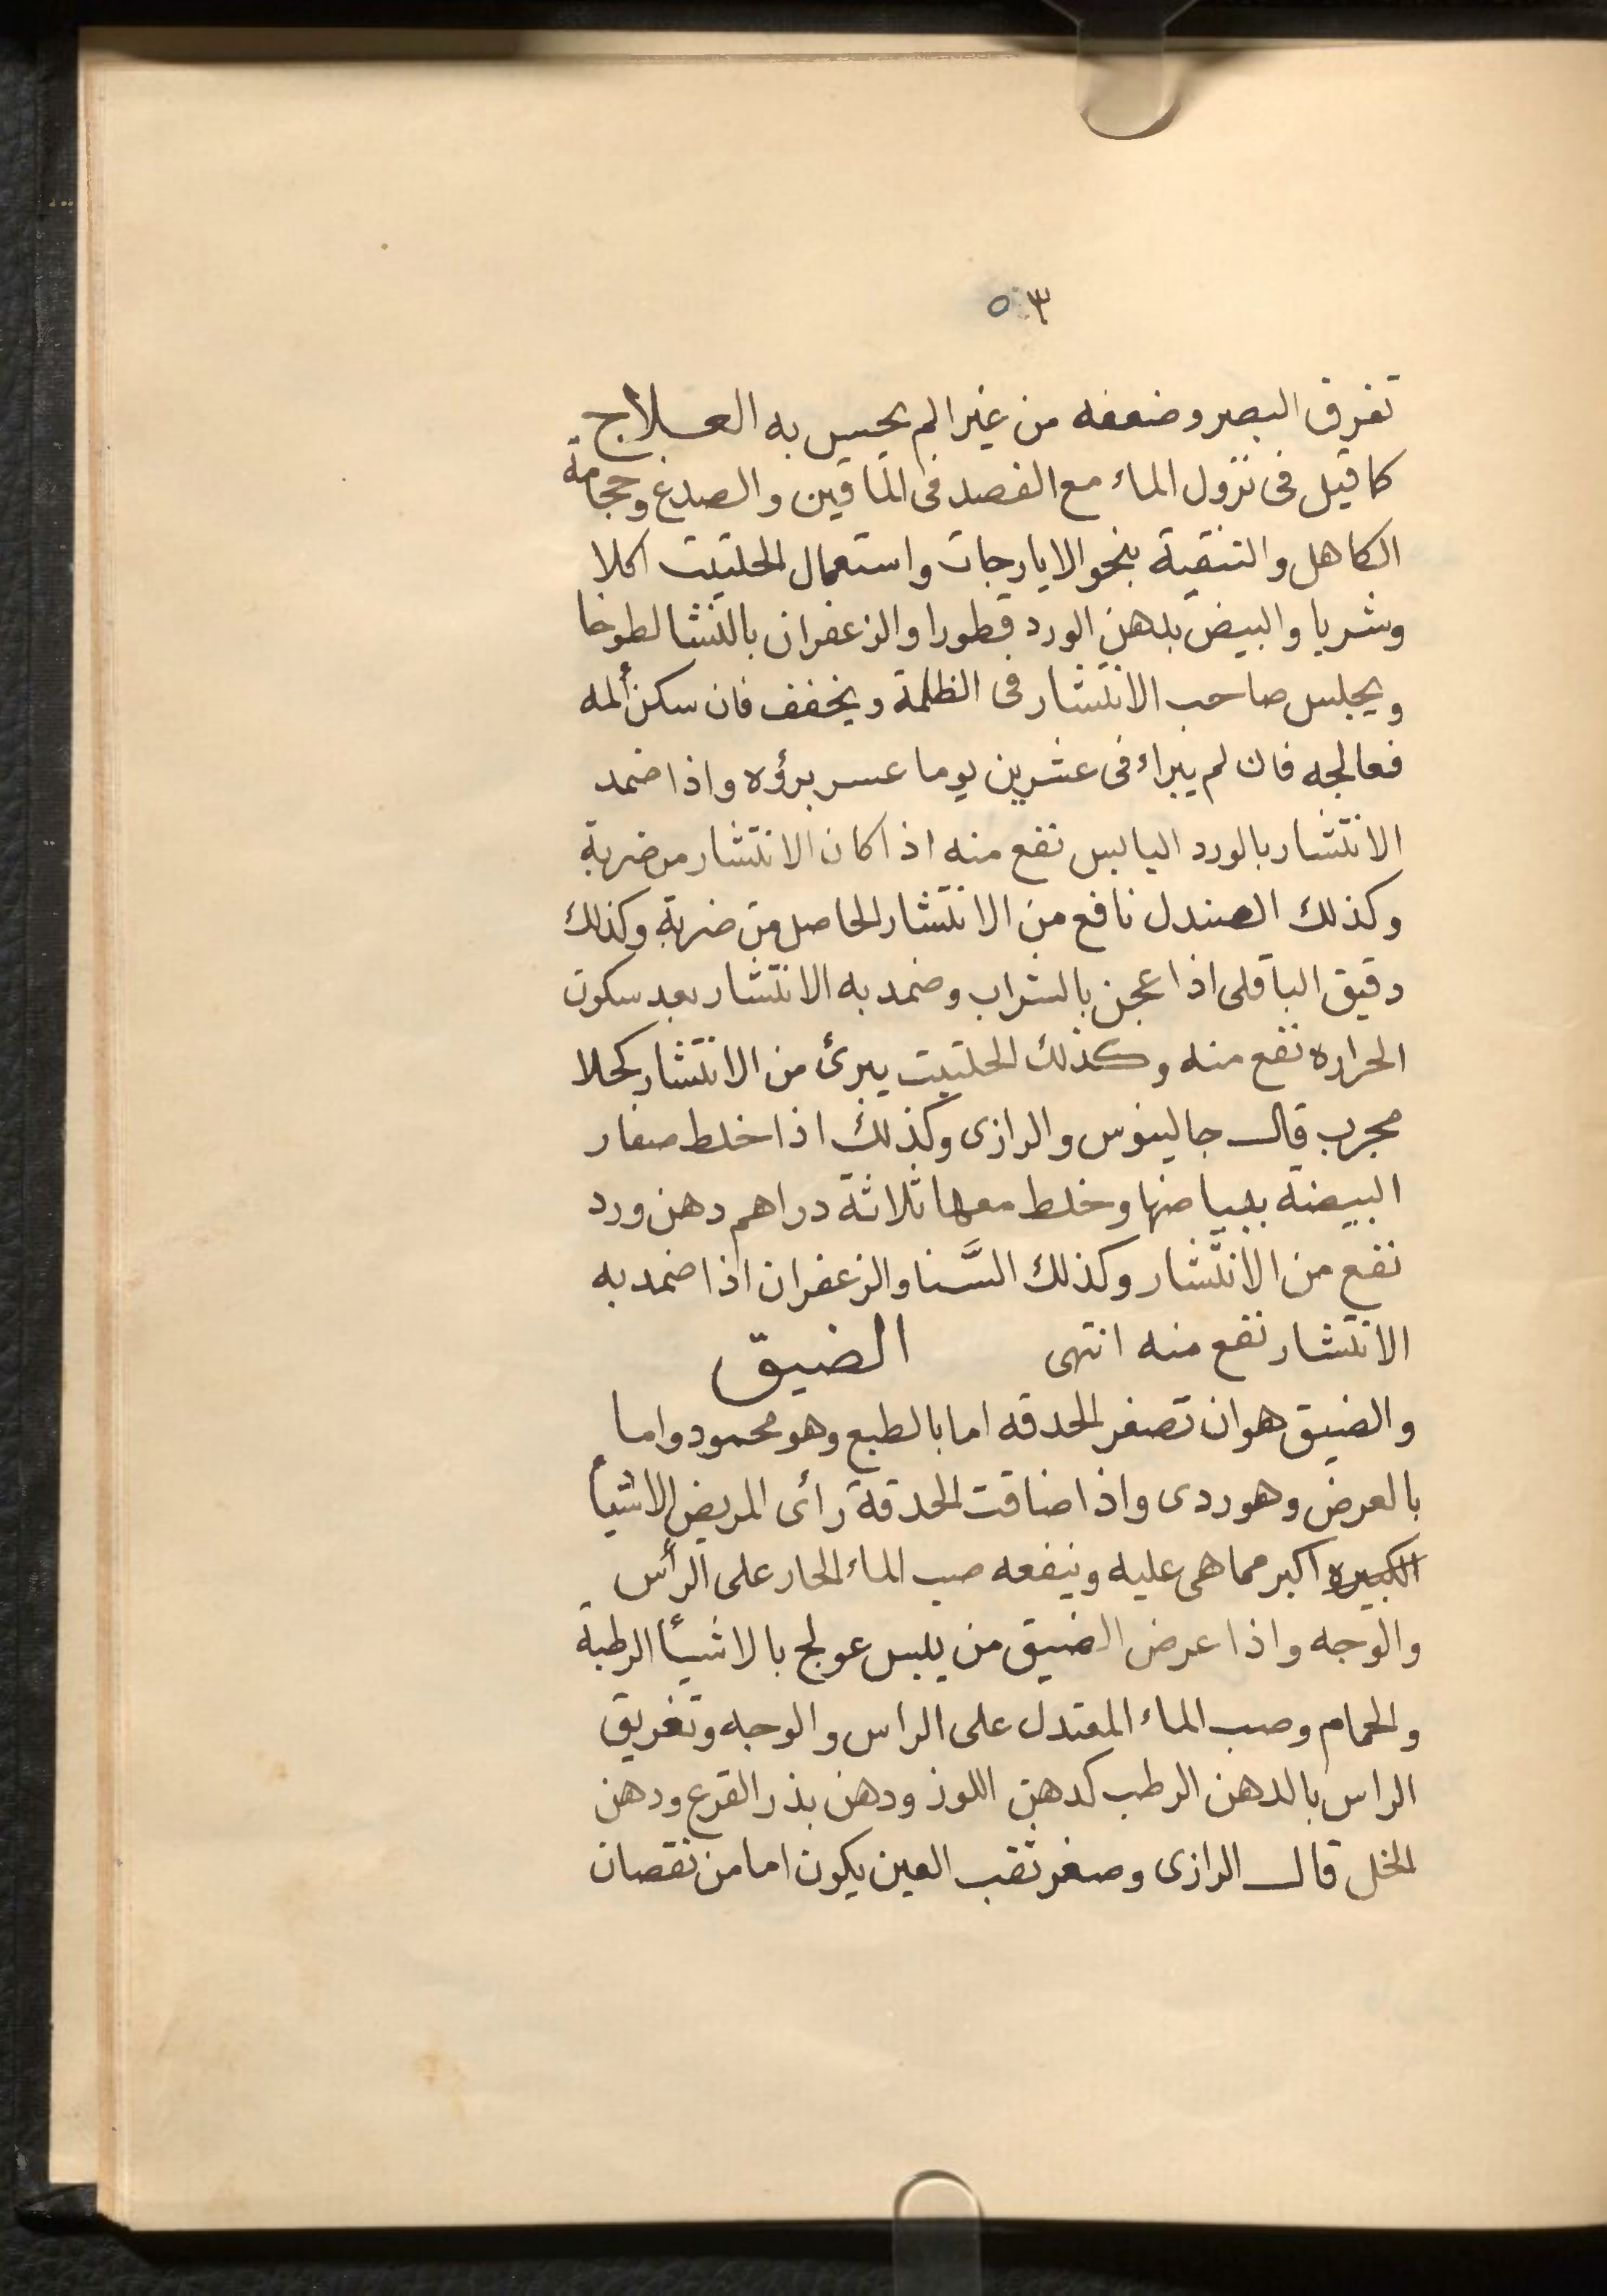 ٥٣
تفرق البصر وضعفه من غير الم يحس به العلاج
كما قيل فى نزول الماء مع الفصد فى الماقين والصدغ وحجامة
الكاهل والتنقية بنحو الايارجات واستعمال الحلتيت اكلا
وشربا والبيض بدهن الورد قطورا والزعفران بالنشا لطوخا
ويجلس صاحب الانتشار فى الظلمة ويخفف فان سكن ألمه
فعالجه فان لم يبراء فى عشرين يوما عسر برؤه واذا ضمد
الانتشار بالورد اليابس نفع منه اذا كان الانتشار من ضربة
وكذلك الصندل نافع من الانتشار الحاصل من ضربة وكذلك
دقيق الباقلى اذا عجن بالشراب وضمد به الانتشار بعد سكون
الحراره نفع منه وكذلك الحلتيت يبرئ من الانتشار كحلا
مجرب قال جالينوس والرازى وكذلك اذا خلط صفار
البيضة ببياضها وخلط معها ثلاثة دراهم دهن ورد
نفع من الانتشار وكذلك السَّنا والزعفران اذا ضمد به
الانتشار نفع منه انتهى الضيق
والضيق هو ان تصغر الحدقه اما بالطبع وهو محمود واما
بالعرض وهو ردى واذا ضاقت الحدقة رأى المريض الاشيأ
الكبيره اكبر مما هى عليه وينفعه صب الماء الحار على الرأس
والوجه واذا عرض الضيق من يبس عولج بالاشيأ الرطبة
والحمام وصب الماء المعتدل على الراس والوجه وتغريق
الراس بالدهن الرطب كدهن اللوز ودهن بذر القرع ودهن
الخل قال الرازى وصغر ثقب العين يكون اما من نقصان